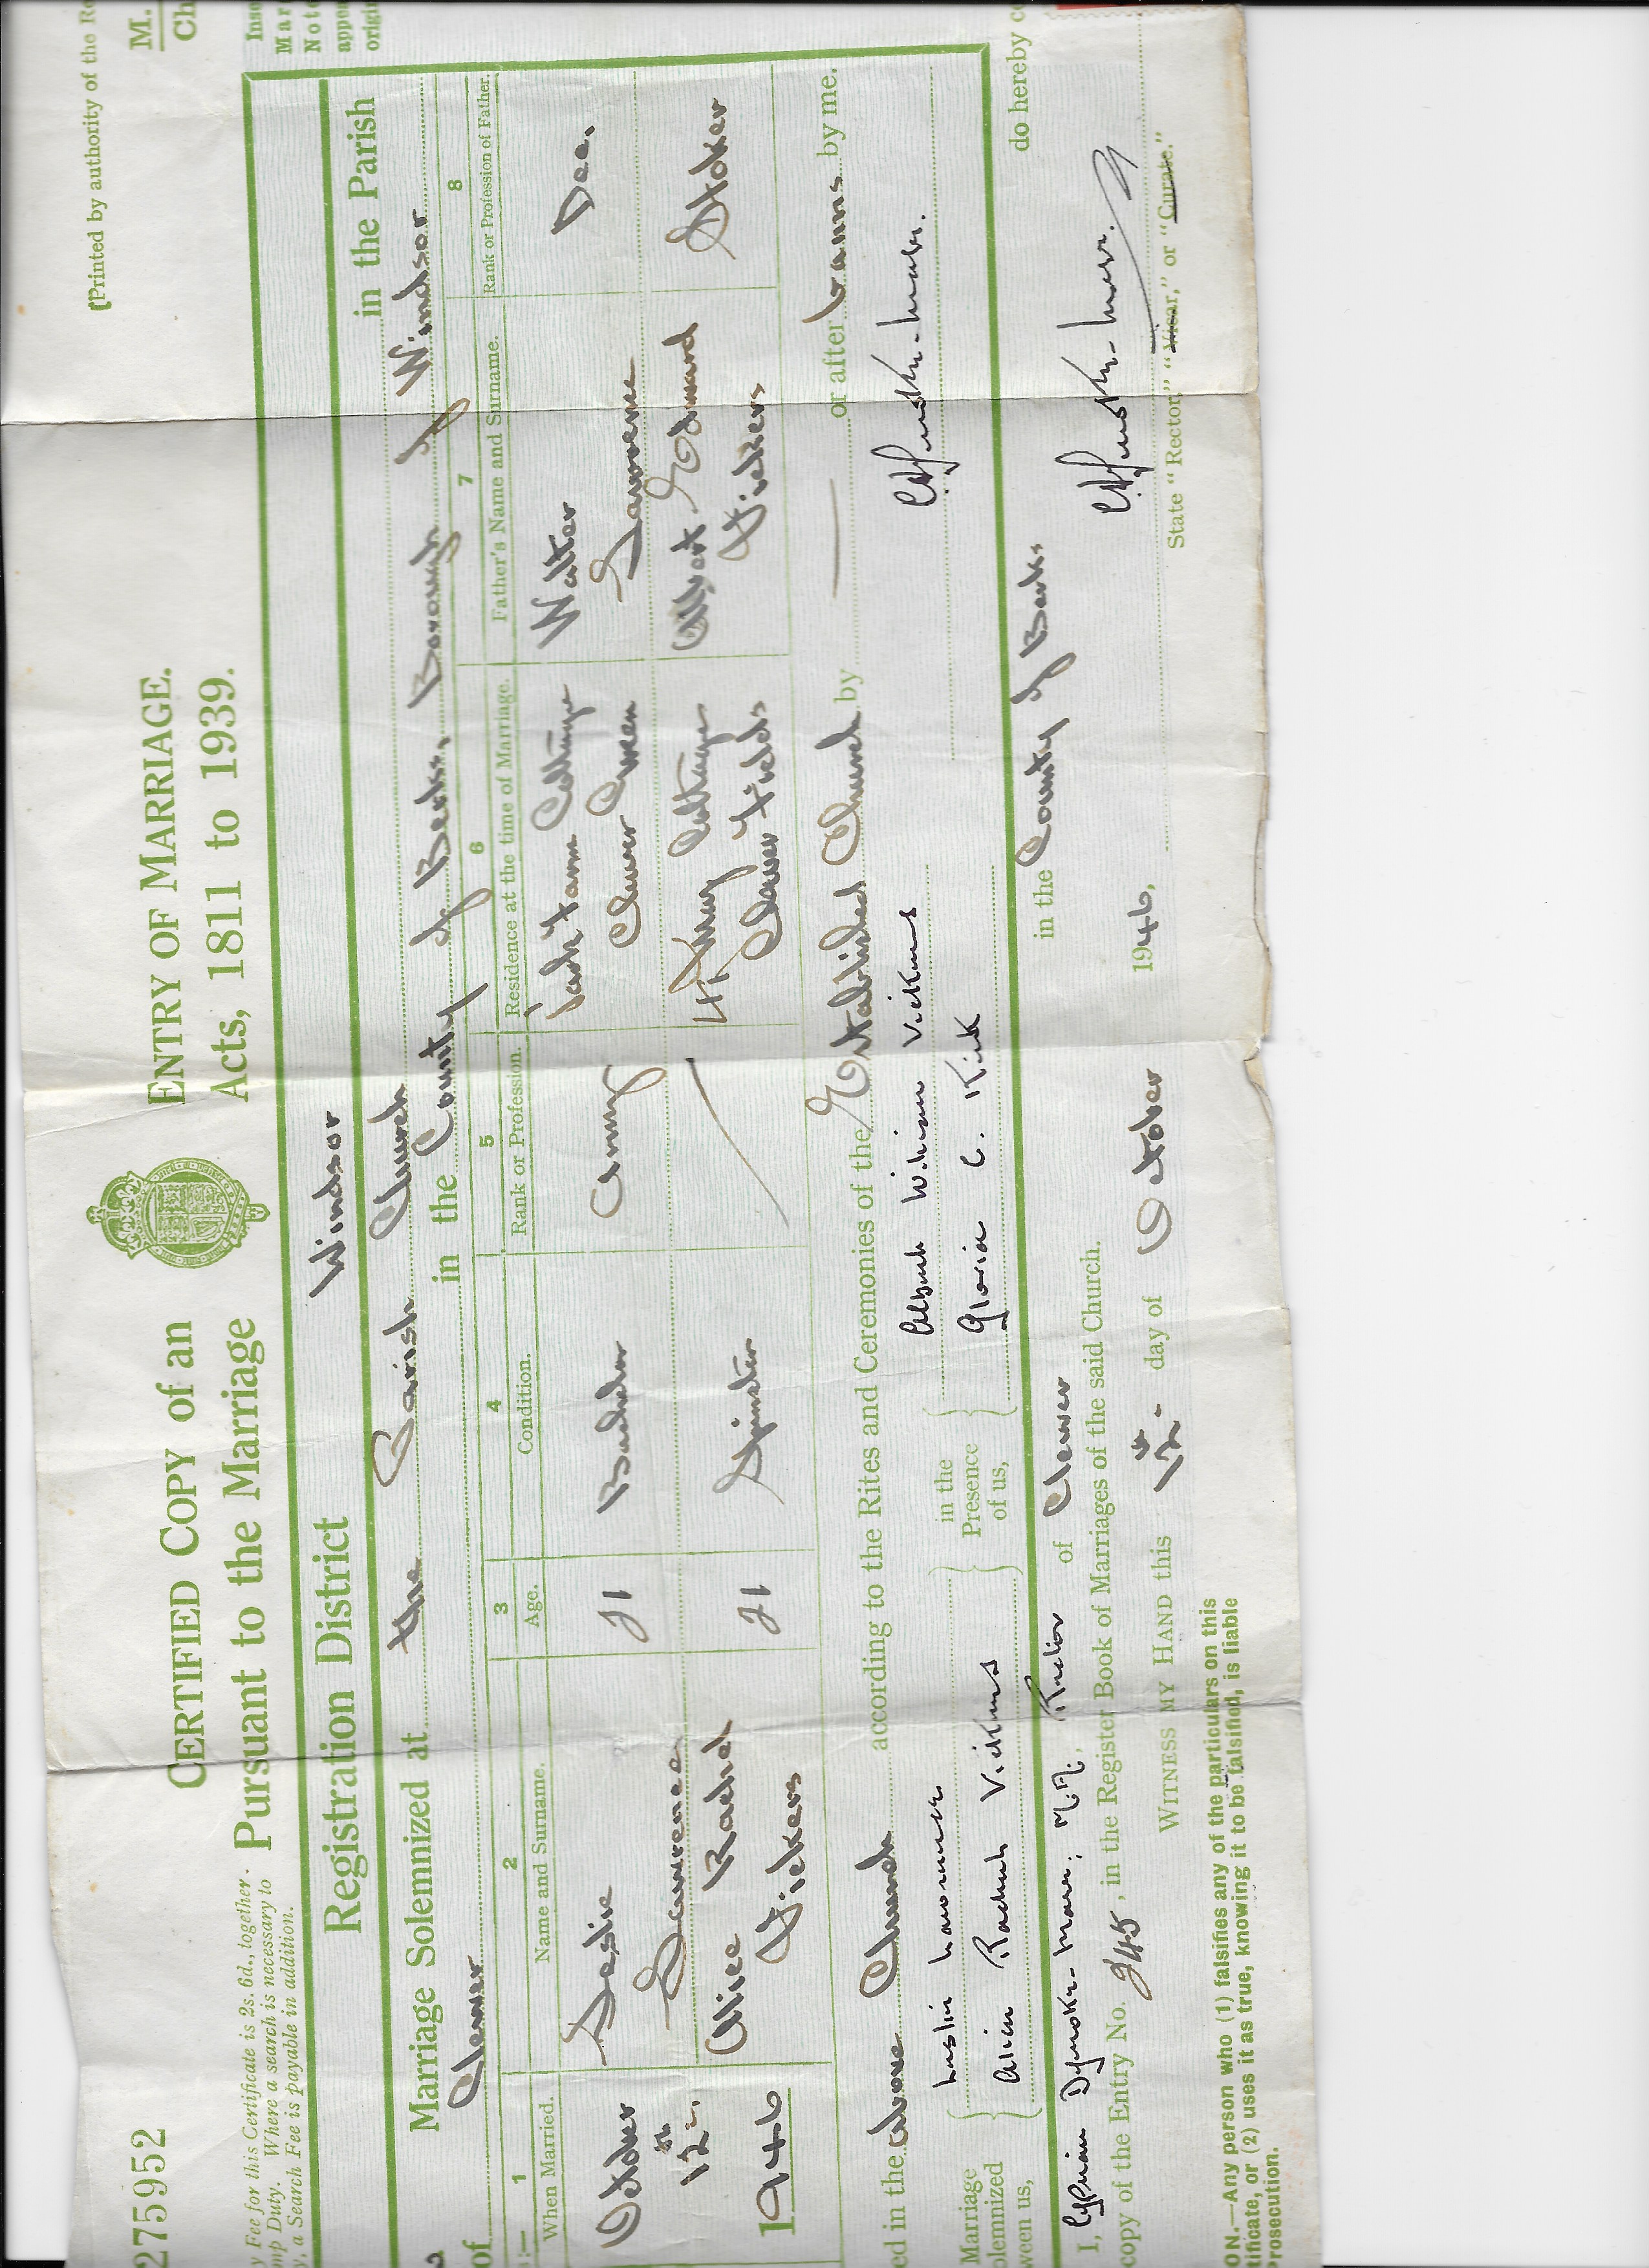 275952
CERTIFIED COPY of an ENTRY OF MARRIAGE.
[Printed by authority of the Re
Pursuant to the Marriage Acts, 1811 to 1939.
M.
Ch
y Fee for this Certificate is 2s. 6d., together
mp Duty. Where a search is necessary to
y, a Search Fee is payable in addition.
Inse
Mar
Note
appe
origi
Registration District Windsor
Marriage Solemnized at the Parish Church in the Parish
of Clewer in the County of Berks, Borough of Windsor
1 2 3 4 5 6 7 8
When Married. Name and Surname. Age. Condition. Rank or Profession. Residence at the time of Marriage. Father's Name and Surname. Rank or Profession of Father.
October 12th, 1946
Leslie Lawrence 21 Bachelor Army Farm Cottage Clewer Green Walter Lawrence Dec.
Alice Rachel Vickers 21 Spinster 4 Cottages Clewer Fields Albert Edward Vickers Stoker
ed in the above Church according to the Rites and Ceremonies of the Established Church by — or after banns by me.
Marriage
olemnized
ween us,
Leslie Lawrence
Alice Rachel Vickers
in the
Presence
of us,
Albert William Vickers
Gloria C. Kirk
I, Cyprian Dymoke-Marr, M.A. Rector of Clewer in the County of Berks. do hereby ce
copy of the Entry No. 245, in the Register Book of Marriages of the said Church.
WITNESS MY HAND this 12th day of October 1946,
State "Rector," "Vicar," or "Curate."
ON.—Any person who (1) falsifies any of the particulars on this
tificate, or (2) uses it as true, knowing it to be falsified, is liable
Prosecution.